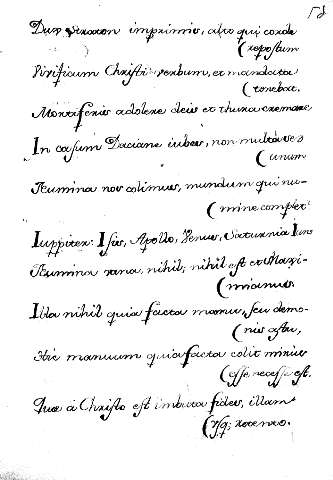 imprimis, alto qui corde
(repostum
Vivificum Christi verbum, et mandata
(tenebat.
Mortiferis adolere deis et thura cremare
In casum Daciane iubes, non multa sed
(unum
Numina nos colimus, mundum qui nu-
(mine complet
Iuppiter: Isis, Apollo, Venus, Saturnia Iuno
Numina vana, nihil; nihil est et Maxi-
(mianus.
Illa nihil quia facta manu, seu demo-
(nis astu,
Hic manuum quia facta colit minus
(esse necesse est.
Quae a Christo est imbuta fides, illam
(usq;